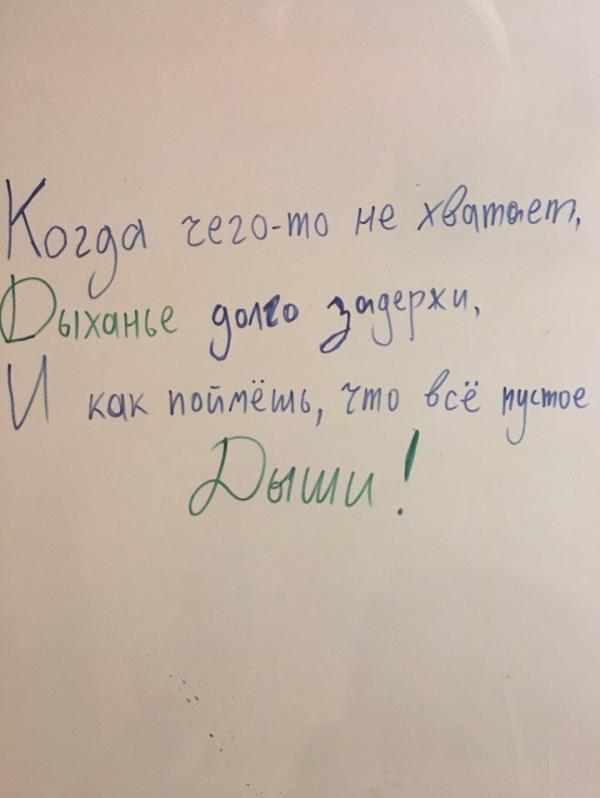 Когда чего-то не хватает,
Дыханье долго задержи,
И как поймёшь, что всё пустое
Дыши!